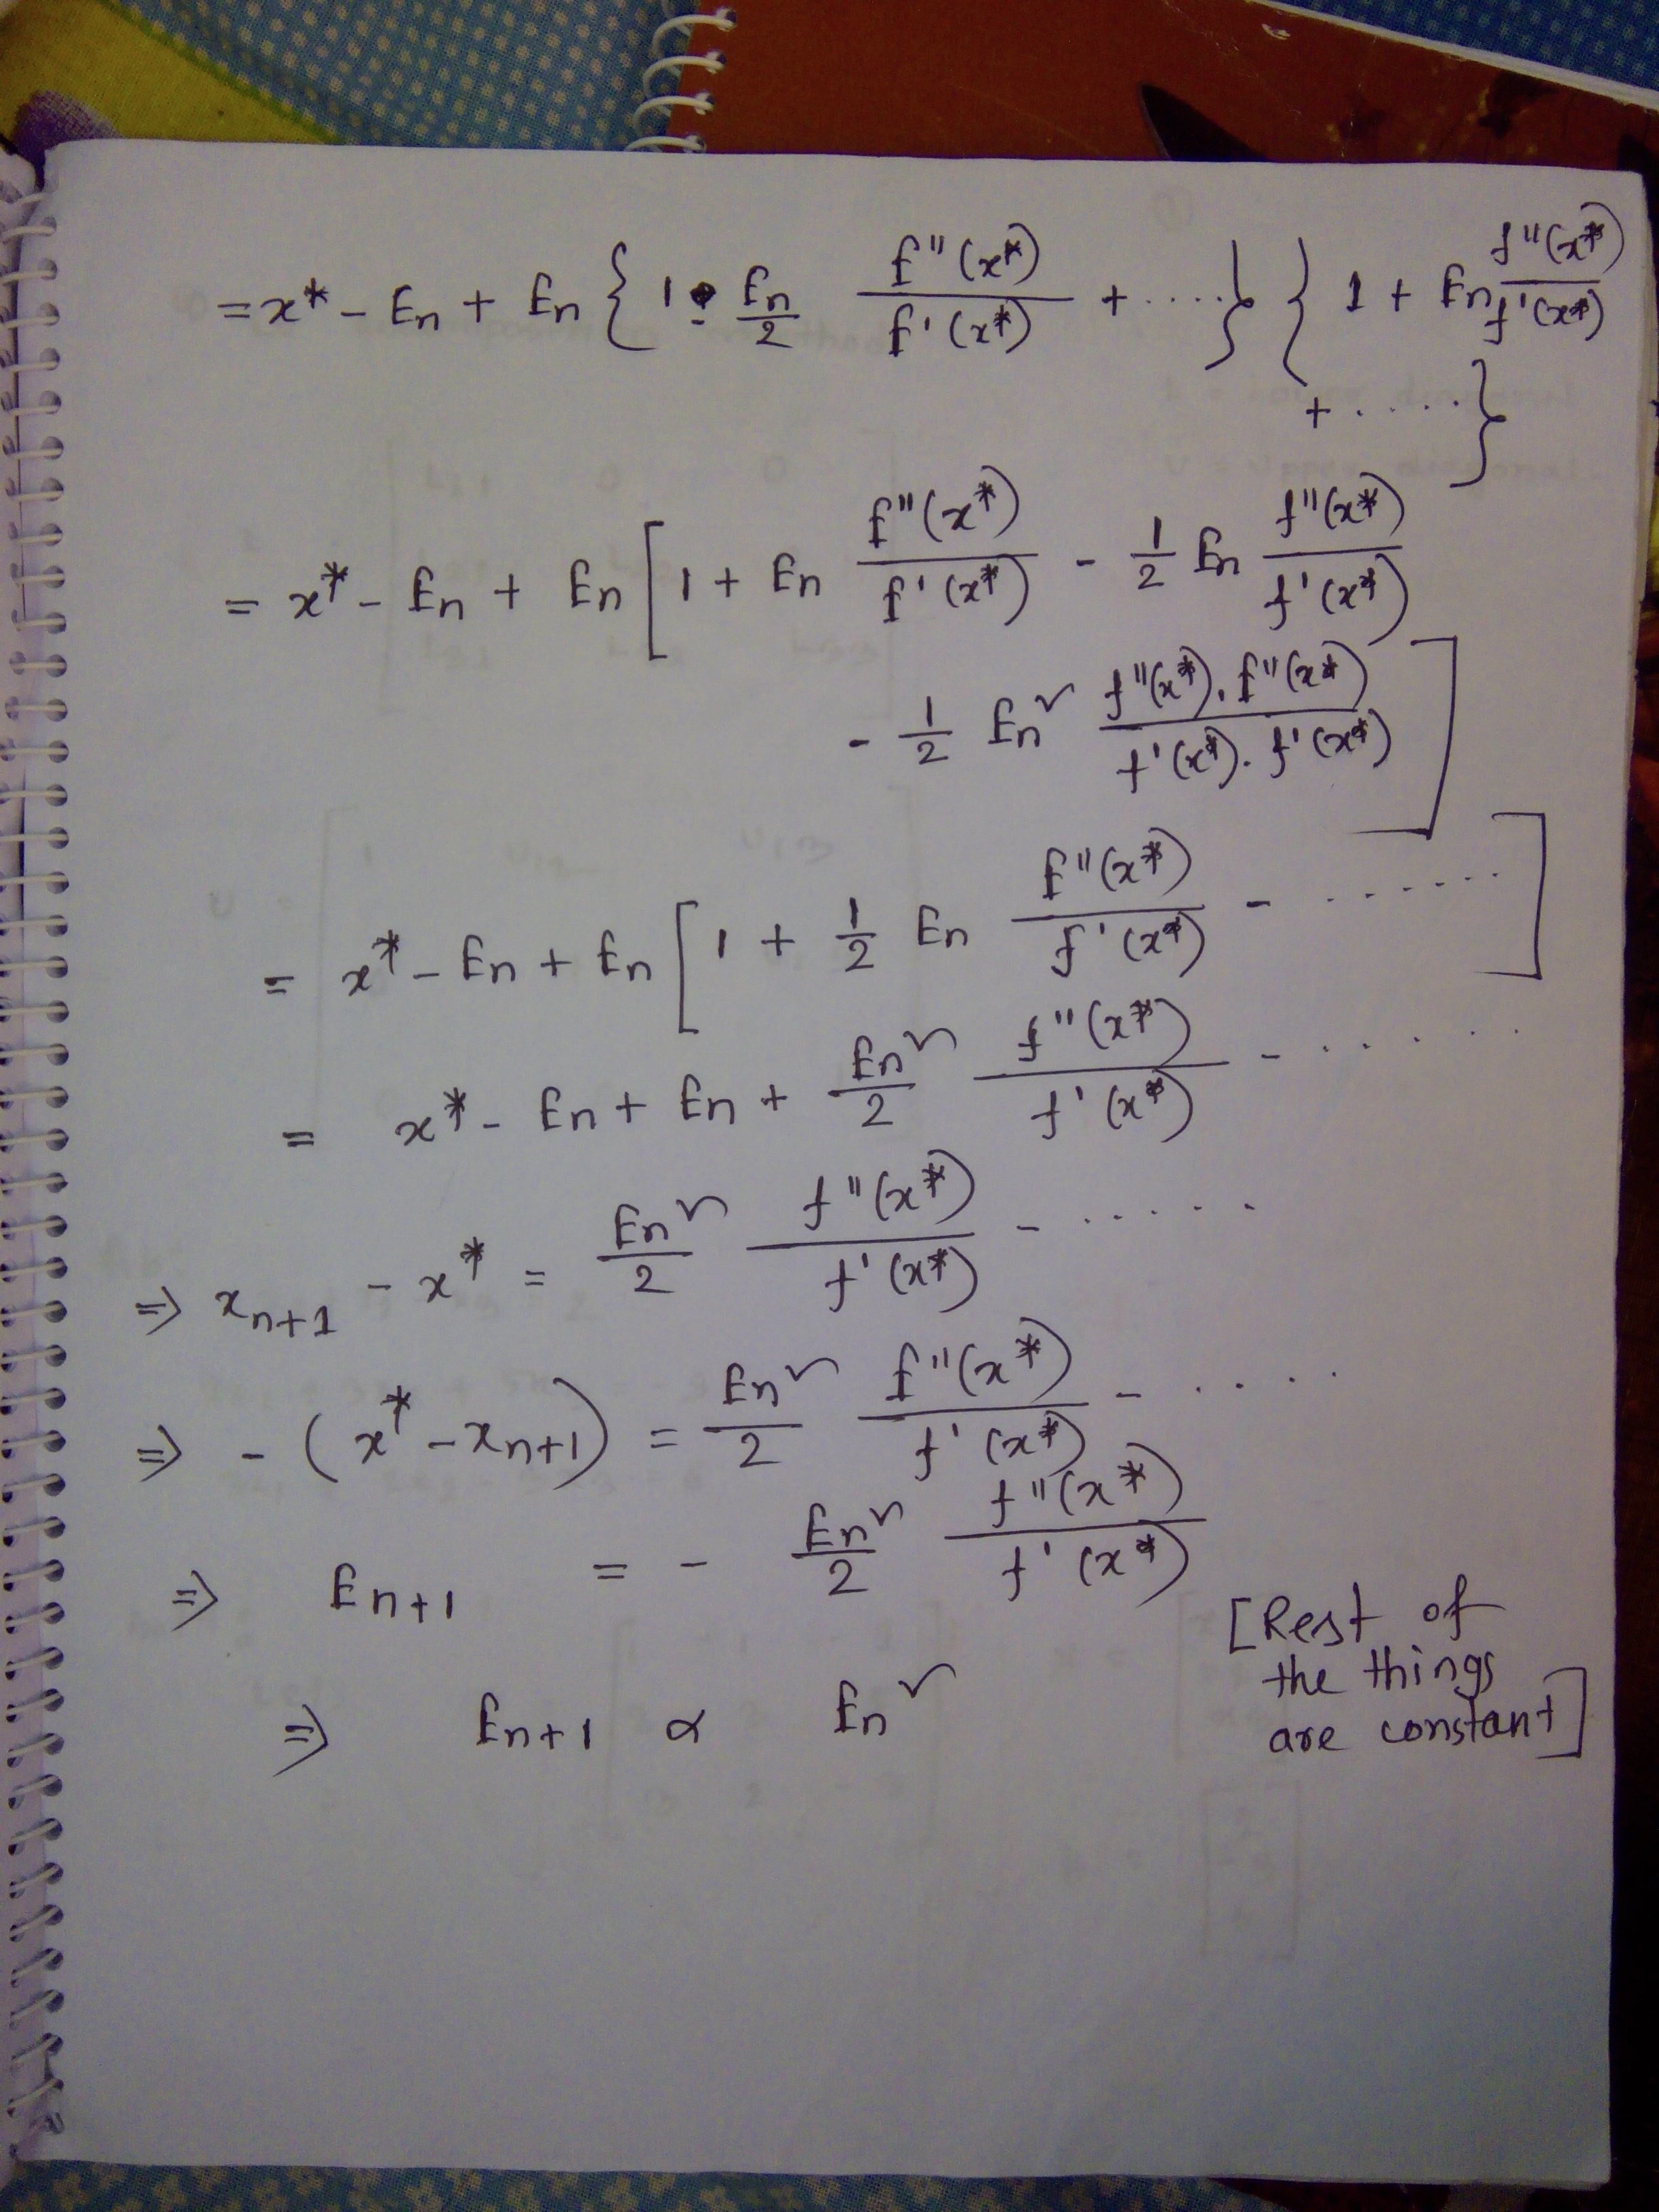 = x* - En + En { 1 - En/2 f''(x*)/f'(x*) + ..... } { 1 + En f''(x*)/f'(x*)
+ ..... }
= x* - En + En [ 1 + En f''(x*)/f'(x*) - 1/2 En f''(x*)/f'(x*)
- 1/2 En² f''(x*). f''(x*)/f'(x*). f'(x*) ]
= x* - En + En [ 1 + 1/2 En f''(x*)/f'(x*) - ....... ]
= x* - En + En + En²/2 f''(x*)/f'(x*) - ......
⇒ x_{n+1} - x* = En²/2 f''(x*)/f'(x*) - .....
⇒ - (x* - x_{n+1}) = En²/2 f''(x*)/f'(x*) - ....
⇒ E_{n+1} = - En²/2 f''(x*)/f'(x*)
[Rest of
the things
are constant]
⇒ E_{n+1} ∝ En²